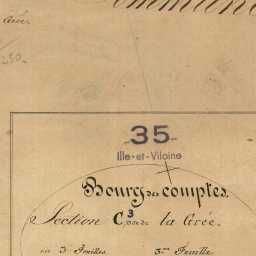 Commun
250.
35
Ille-et-Vilaine
Bourg des comptes.
Section C 3 de la Grée.
en 3 Feuilles 3me Feuille